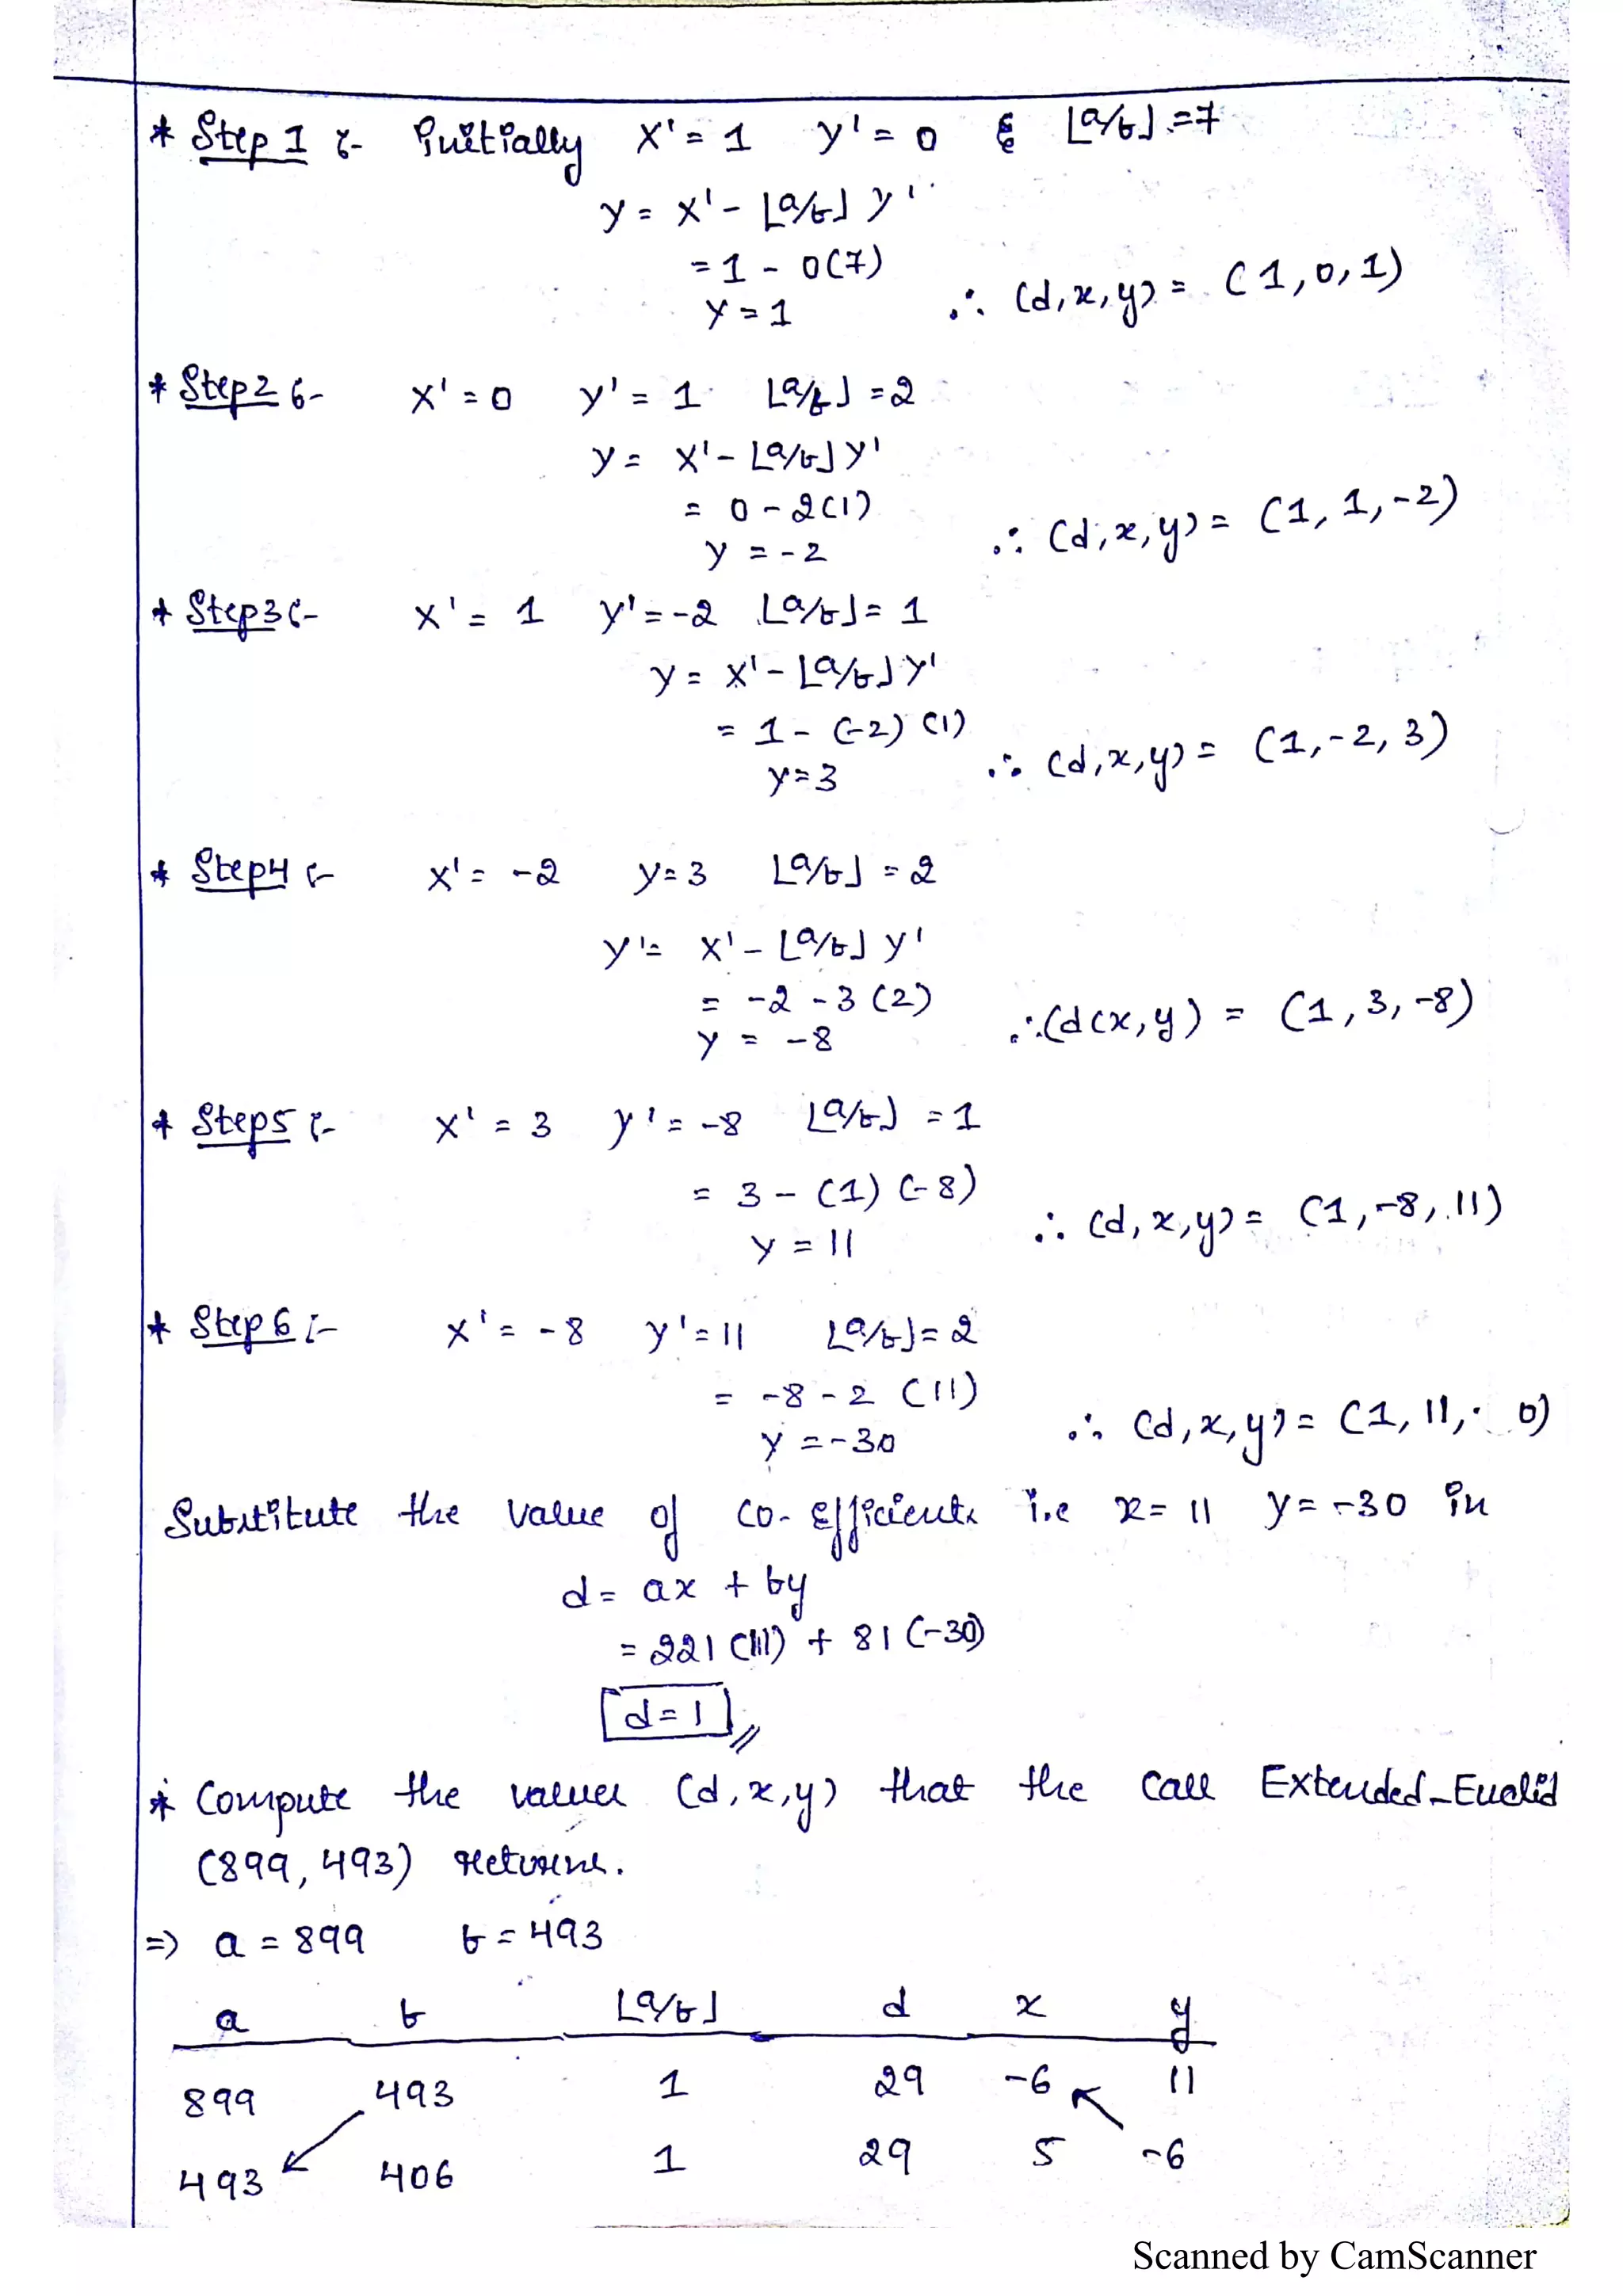 * Step 1 :- Initially x' = 1 y' = 0 & ⌊a/b⌋ = 7
y = x' - ⌊a/b⌋ y'
= 1 - 0(7)
y = 1 ∴ (d, x, y) = (1, 0, 1)
* Step 2 :- x' = 0 y' = 1 ⌊a/b⌋ = 2
y = x' - ⌊a/b⌋ y'
= 0 - 2(1)
y = -2 ∴ (d, x, y) = (1, 1, -2)
* Step 3 :- x' = 1 y' = -2 ⌊a/b⌋ = 1
y = x' - ⌊a/b⌋ y'
= 1 - (-2) (1)
y = 3 ∴ (d, x, y) = (1, -2, 3)
* Step 4 :- x' = -2 y = 3 ⌊a/b⌋ = 2
y' = x' - ⌊a/b⌋ y'
= -2 - 3 (2)
y = -8 ∴ (d (x, y) = (1, 3, -8)
* Step 5 :- x' = 3 y' = -8 ⌊a/b⌋ = 1
= 3 - (1) (-8)
y = 11 ∴ (d, x, y) = (1, -8, 11)
* Step 6 :- x' = -8 y' = 11 ⌊a/b⌋ = 2
= -8 - 2 (11)
y = -30 ∴ (d, x, y) = (1, 11, 0)
Substitute the value of co-efficients i.e x = 11 y = -30 in
d = ax + by
= 221 (11) + 81 (-30)
d = 1
* Compute the values (d, x, y) that the call Extended-Euclid
(899, 493) returns.
=> a = 899 b = 493
a b ⌊a/b⌋ d x y
899 493 1 29 -6 11
493 406 1 29 5 -6
Scanned by CamScanner